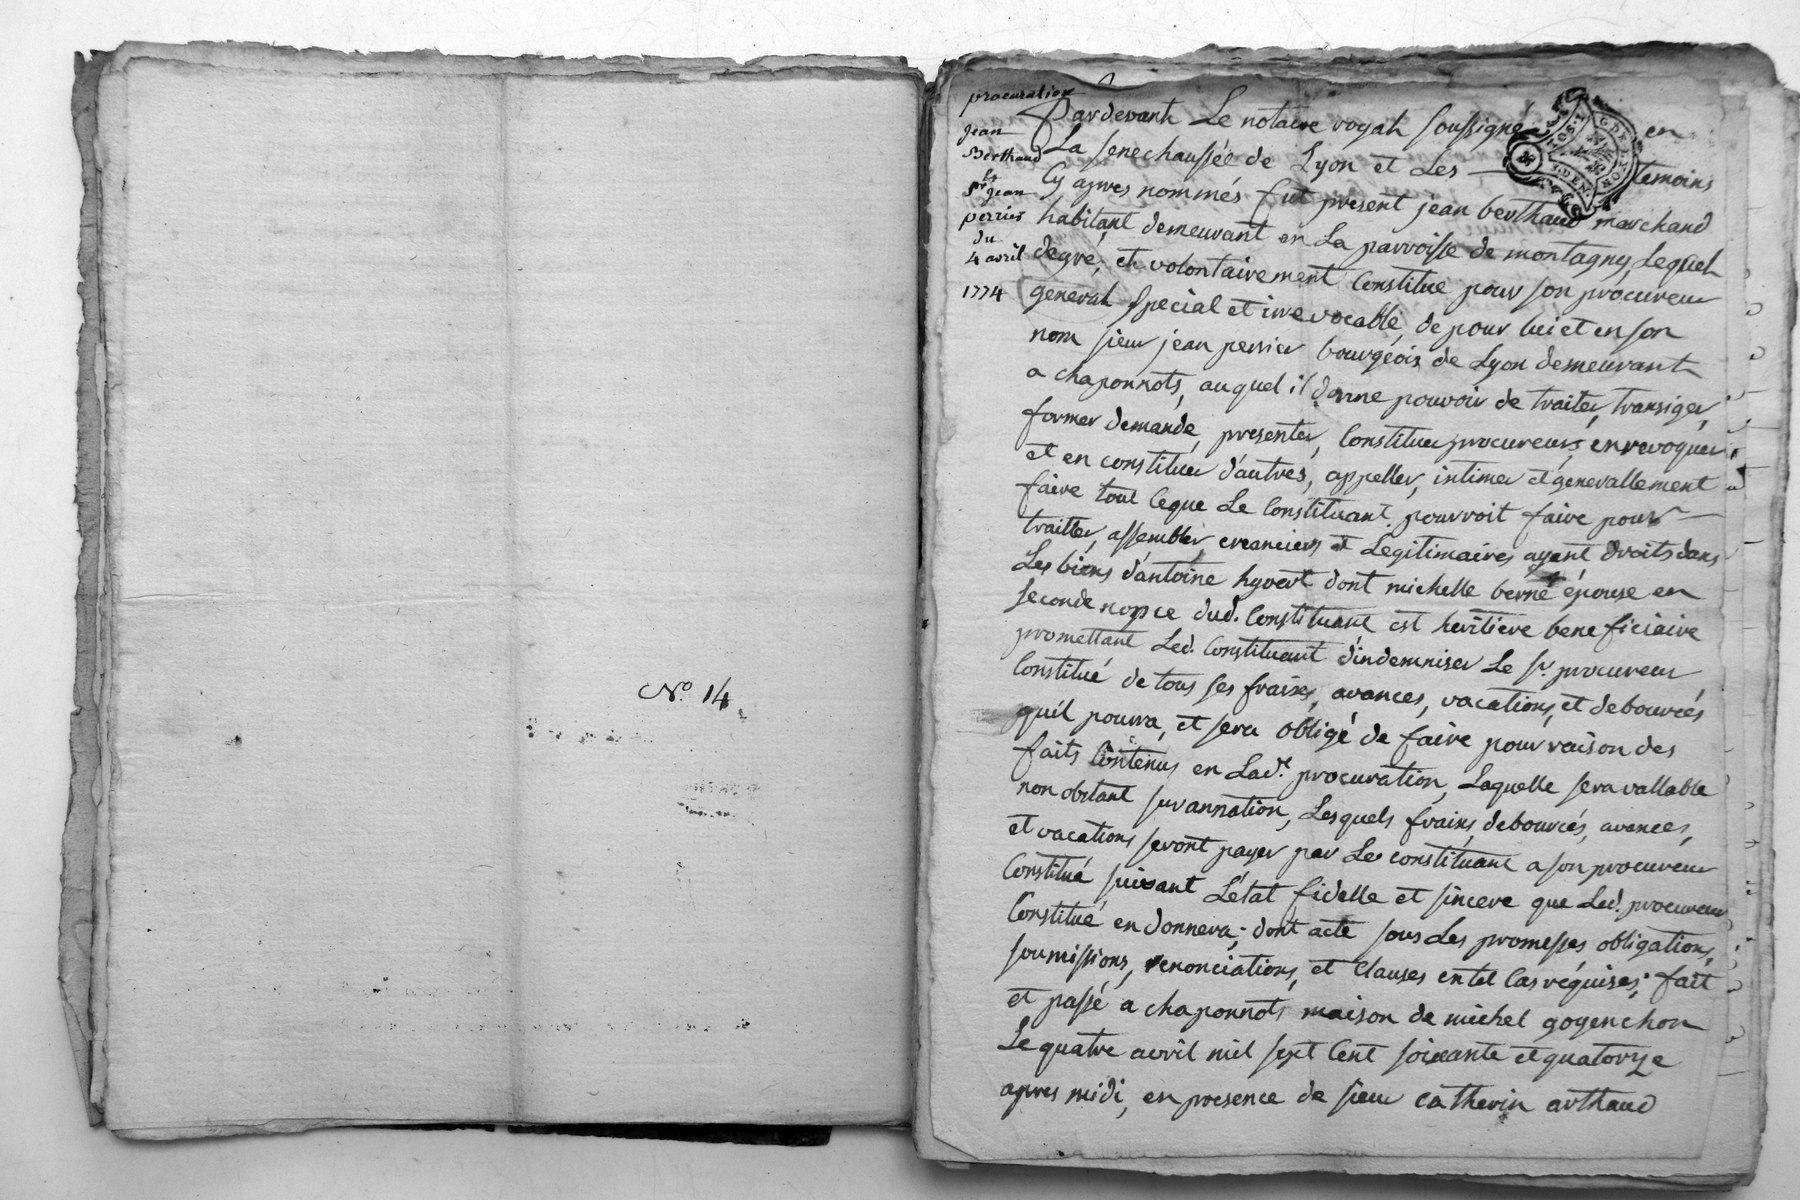 No. 14
procuration
jean
Berthaud
et
sr. jean
perrier
du
4 avril
1774
Pardevant Le notaire royal soussigné en
La senechaussée de Lyon et Les temoins
Cy apres nommés fut present jean berthaud marchand
habitant demeurant en La parroisse de montagny, Lequel
degré, et volontairement Constitue pour son procureur
general special et irrevocable, de pour lui et en son
nom sieur jean perrier bourgeois de Lyon demeurant
a chaponnots, auquel il donne pouvoir de traiter, transiger,
former demande, presenter, Constituer procureurs, en revoquer,
et en constituer d'autres, appeller, intimer et generallement
faire tout Ceque Le Constituant pourroit faire pour
traitter, assembler creanciers et Legitimaires ayant droits dans
Les biens d'antoine hyvert dont michelle berne épouse en
seconde nopce dud. Constituant est heritiere beneficiaire
promettant Led. Constituant d'indemniser Le sr. procureur
Constitué de tous ses fraix, avances, vacations, et debourcés
quil pourra, et sera obligé de faire pour raison des
faits Contenus en Lade. procuration, Laquelle sera vallable
non obstant surannation, Lesquels fraix, debourcés, avances,
et vacations seront payer par Le constituant a son procureur
Constitué suivant L'état fidelle et sincere que Led. procureur
Constitué en donnera; dont acte sous Les promesses, obligations,
soumissions, renonciations, et Clauses en tel Cas réquises; fait
et passé a chaponnots maison de michel gogenchon
Le quatre avril mil sept Cent soixante et quatorze
apres midi, en presence de sieur catherin arthaud